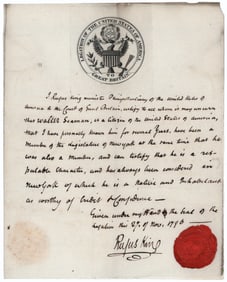 LEGATION OF THE UNITED STATES OF AMERICA
TO
GREAT BRITAIN
I Rufus King minister Plenipotentiary of the United States of
America to the Court of Great Britain, certify to all whom it may concern
that Walter Seaman, is a Citizen of the United States of America,
that I have personally known him for several Years, have been a
Member of the Legislature of Newyork at the same time that he
was also a Member, and can testify that he is a rep-
putable character, and has always been considered in
NewYork of which he is a Native and Inhabitant
as worthy of Credit & Confidence —
Given under my Hand & the Seal of the
Legation this 29. of Nov. 1796 —
Rufus King